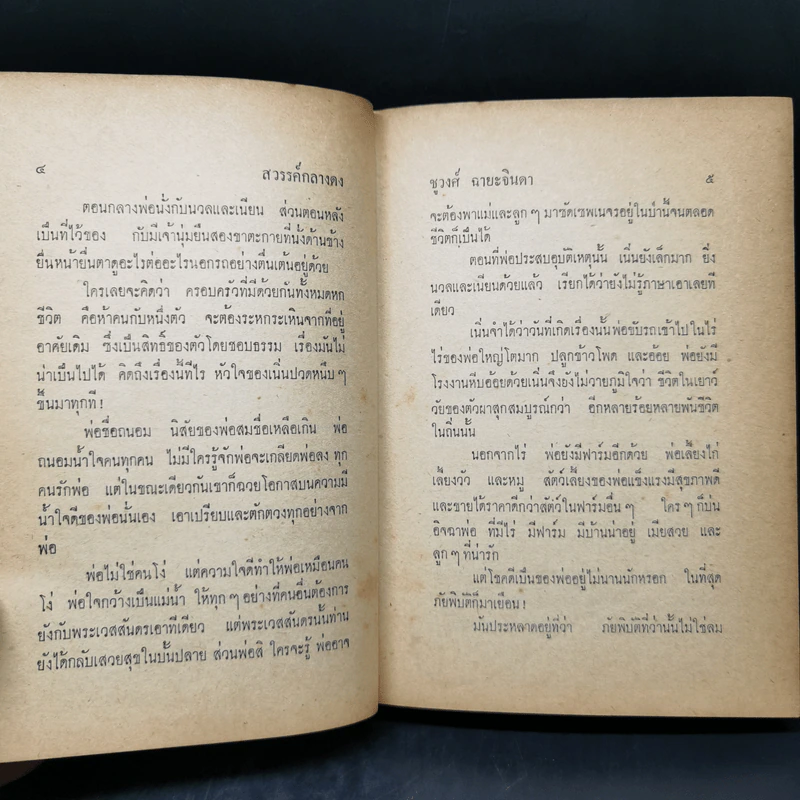 ๔
สวรรค์กลางดง
ตอนกลางพ่อนั่งกับนวลและเนียน ส่วนตอนหลัง
เป็นที่ไว้ของ กับมีเจ้านุ่มยืนสองขาตะกายที่นั่งด้านข้าง
ยื่นหน้ายื่นตาดูอะไรต่ออะไรนอกรถอย่างตื่นเต้นอยู่ด้วย
ใครเลยจะคิดว่า ครอบครัวที่มีด้วยกันทั้งหมดหก
ชีวิต คือห้าคนกับหนึ่งตัว จะต้องระหกระเหินจากที่อยู่
อาศัยเดิม ซึ่งเป็นสิทธิ์ของตัวโดยชอบธรรม เรื่องมันไม่
น่าเป็นไปได้ คิดถึงเรื่องนี้ทีไร หัวใจของเนิ่นปวดหนึบๆ
ขึ้นมาทุกที !
พ่อชื่อถนอม นิสัยของพ่อสมชื่อเหลือเกิน พ่อ
ถนอมน้ำใจคนทุกคน ไม่มีใครรู้จักพ่อจะเกลียดพ่อลง ทุก
คนรักพ่อ แต่ในขณะเดียวกันเขาก็ฉวยโอกาสบนความมี
น้ำใจดีของพ่อนั่นเอง เอาเปรียบและตักตวงทุกอย่างจาก
พ่อ
พ่อไม่ใช่คนโง่ แต่ความใจดีทำให้พ่อเหมือนคน
โง่ พ่อใจกว้างเป็นแม่น้ำ ให้ทุกๆ อย่างที่คนอื่นต้องการ
ยังกับพระเวสสันดรเอาทีเดียว แต่พระเวสสันดรนั้นท่าน
ยังได้กลับเสวยสุขในบั้นปลาย ส่วนพ่อสิ ใครจะรู้ พ่ออาจ
ชูวงศ์ ฉายะจินดา
๕
จะต้องพาแม่และลูกๆ มาซัดเซพเนจรอยู่ในป่านี้จนตลอด
ชีวิตก็เป็นได้
ตอนที่พ่อประสบอุบัติเหตุนั้น เนิ่นยังเล็กมาก ยิ่ง
นวลและเนียนด้วยแล้ว เรียกได้ว่ายังไม่รู้ภาษาเอาเลยที
เดียว
เนิ่นจำได้ว่าวันที่เกิดเรื่องนั้นพ่อขับรถเข้าไปในไร่
ไร่ของพ่อใหญ่โตมาก ปลูกข้าวโพด และอ้อย พ่อยังมี
โรงงานหีบอ้อยด้วยเนิ่นจึงยังไม่วายภูมิใจว่า ชีวิตในเยาว์
วัยของตัวผาสุกสมบูรณ์กว่า อีกหลายร้อยหลายพันชีวิต
ในถิ่นนั้น
นอกจากไร่ พ่อยังมีฟาร์มอีกด้วย พ่อเลี้ยงไก่
เลี้ยงวัว และหมู สัตว์เลี้ยงของพ่อแข็งแรงมีสุขภาพดี
และขายได้ราคาดีกว่าสัตว์ในฟาร์มอื่นๆ ใครๆ ก็บ่น
อิจฉาพ่อ ที่มีไร่ มีฟาร์ม มีบ้านน่าอยู่ เมียสวย และ
ลูกๆ ที่น่ารัก
แต่โชคดีเป็นของพ่ออยู่ไม่นานนักหรอก ในที่สุด
ภัยพิบัติก็มาเยือน !
มันประหลาดอยู่ที่ว่า ภัยพิบัติที่ว่านั้นไม่ใช่ลม